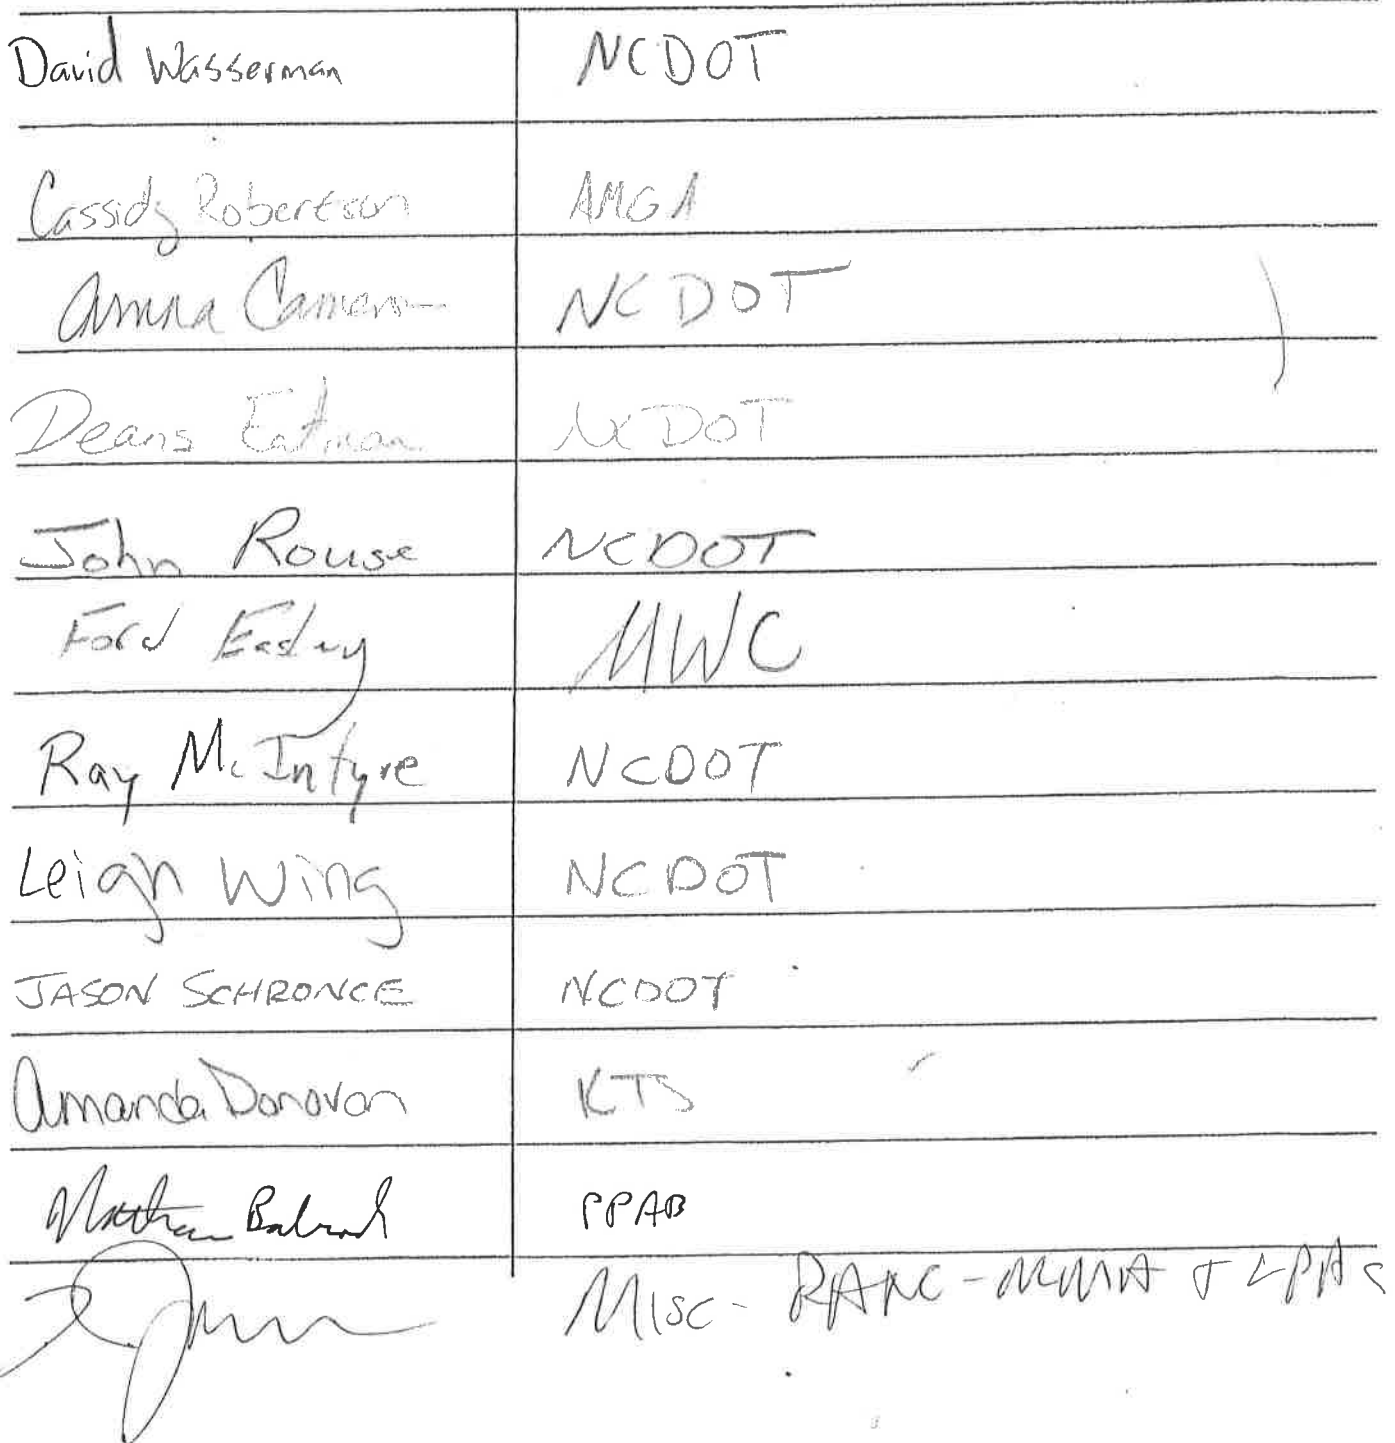 David Wasserman NCDOT
Cassidy Robertson AMGA
Amna Cameron NCDOT
Deans Eatman NCDOT
John Rouse NCDOT
Ford Easley MWC
Ray McIntyre NCDOT
Leigh Wing NCDOT
JASON SCHRONCE NCDOT
Amanda Donovan KTS
PPAB
Misc - RANC -